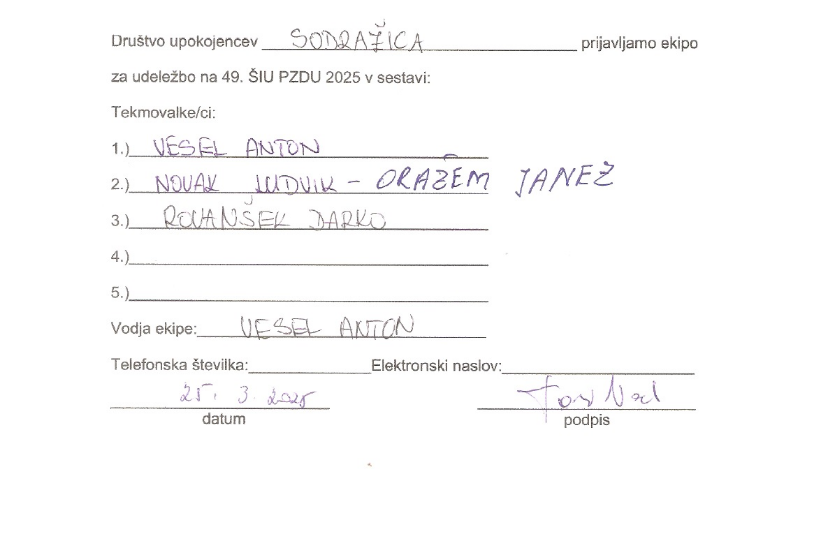 Društvo upokojencev SODRAŽICA prijavljamo ekipo
za udeležbo na 49. ŠIU PZDU 2025 v sestavi:
Tekmovalke/ci:
1.) VESEL ANTON
2.) NOVAK LUDVIK - ORAŽEM JANEŽ
3.) ROVANŠEK DARKO
4.)
5.)
Vodja ekipe: VESEL ANTON
Telefonska številka: Elektronski naslov:
25. 3. 2025
datum podpis